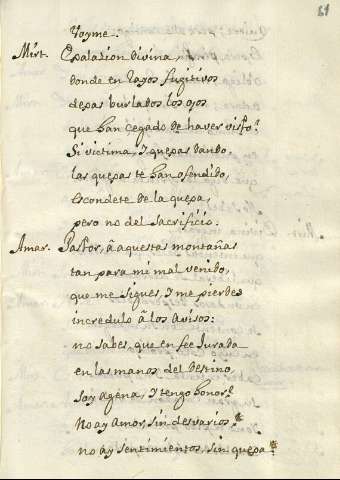 61
Voyme.
Mirt. Exalazion Divina,
donde en rasgos fugitivos
dexas burlados los ojos
que han çegado de haver visto?
Si victima, y quexas dando
las quexas te han ofendido,
escondete de la quexa,
pero no del Sacrificio.
Amar. Pastor, â aquestas montañas
tan para mi mal venido,
que me sigues, y me pierdes
incredulo â los avisos:
no sabes, que en fee Jurada
en las manos del Destino,
soy agena, y tengo honor?
No ay Amor, sin desvarios?
no ay sentimientos, sin quexa?